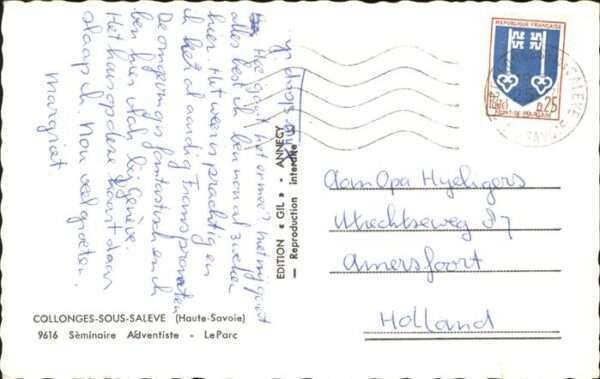 Hoe gaat het ermee? met mij gaat
alles best ik ben nu al
hier Het weer is prachtig en
ik heb al aardig
De omgeving is fantastisch en ik
ben hier vlak bij Genève.
Het huis op deze kaart daar
slaap ik. Nou veel groeten.
Margriet.
EDITION « GIL » - ANNECY
— Reproduction interdite
COLLONGES-SOUS-SALEVE (Haute-Savoie)
9616 Séminaire Adventiste - Le Parc
REPUBLIQUE FRANÇAISE
0,25
MONT-DE-MARSAN
Aan Opa Hyeligers
Utrechtseweg 87
Amersfoort
Holland